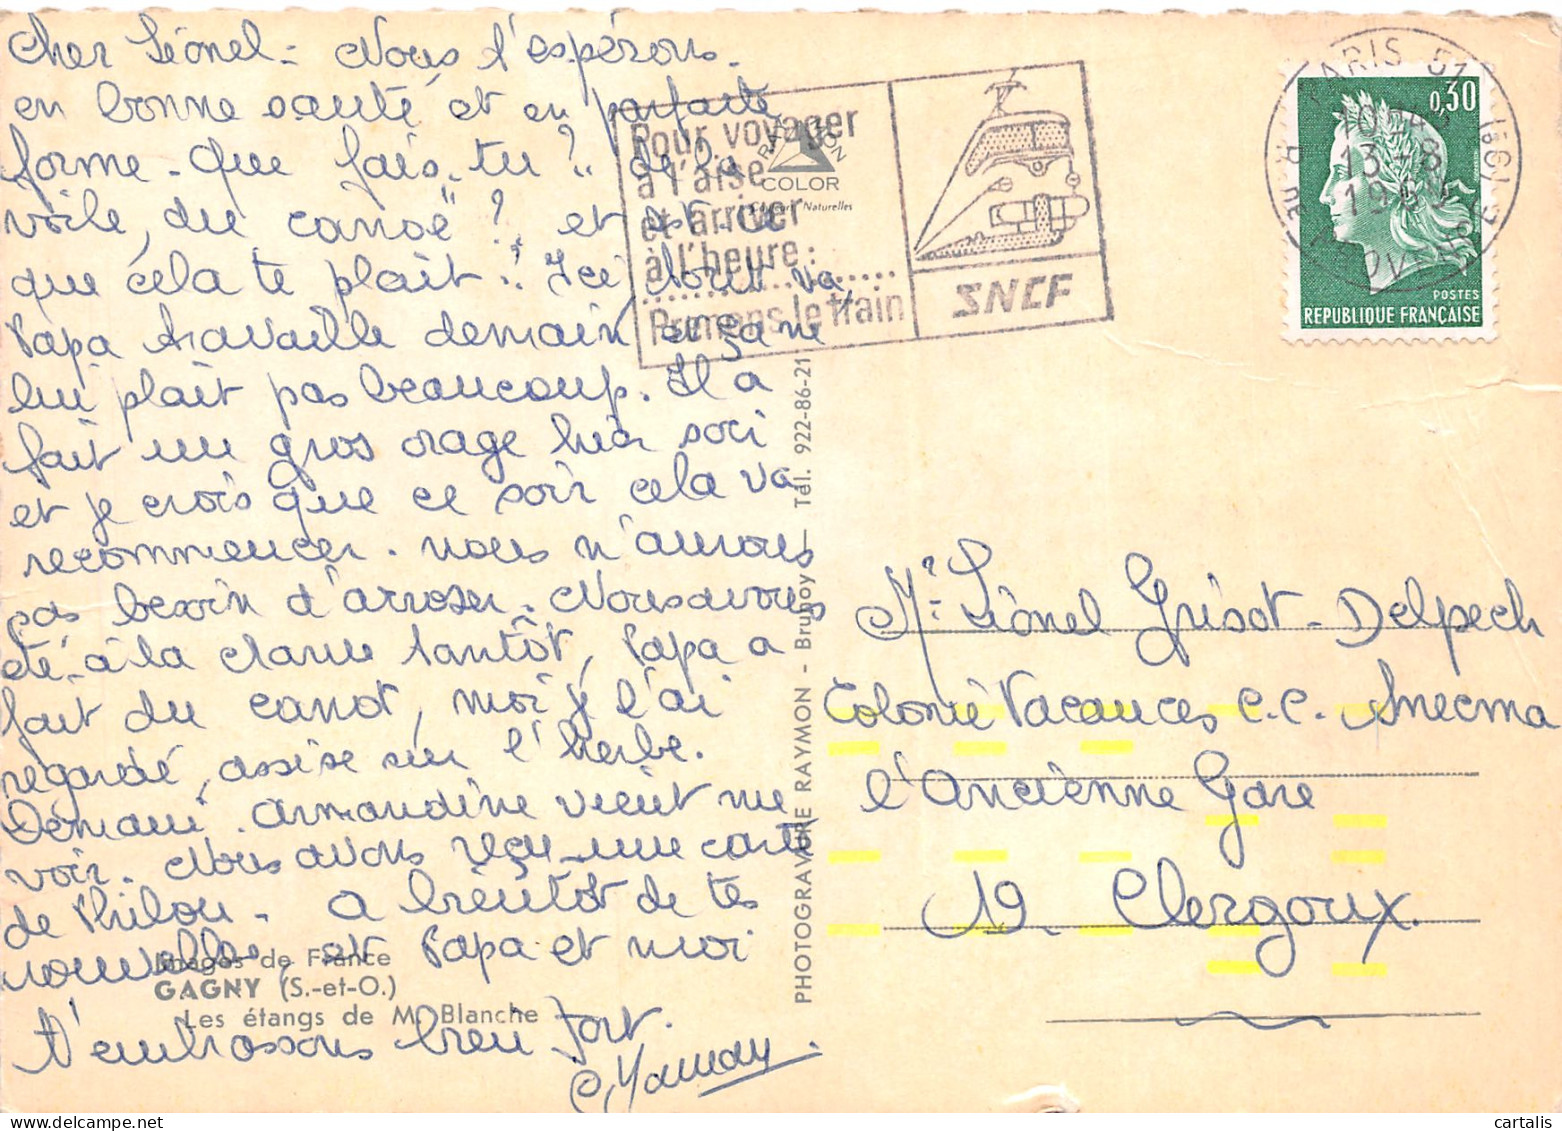 Cher Léonel - Nous l'espérons
en bonne santé et en parfaite
forme - que fais-tu ? de la
voile, du canoë ? et est-ce
que cela te plaît ? Ici tout va,
Papa travaille demain et ça ne
lui plaît pas beaucoup. Il a
fait un gros orage hier soir
et je crois que ce soir cela va
recommencer. nous n'aurons
pas besoin d'arroser. Nous avons
été à la tantôt, Papa a
fait du canot, moi je l'ai
regardé, assise sur l'herbe.
Demain Armandine vient me
voir. Nous avons reçu une carte
de Philou - A bientôt de tes
nouvelles, et Papa et moi
t'embrassons bien fort.
Images de France
GAGNY (S.-et-O.)
Les étangs de M Blanche
PHOTOGRAVURE RAYMON - Brunoy - Tél. 922-86-21
RAYMON
COLOR
Naturelles
Pour voyager
à l'aise
et arriver
à l'heure :
Prenons le train
SNCF
PARIS
13-8
0,30
POSTES
REPUBLIQUE FRANÇAISE
Mr: Léonel Grisot-Delpech
Colonie Vacances C.C. Snecma
l'Ancienne Gare
19. Clergoux.
cartalis